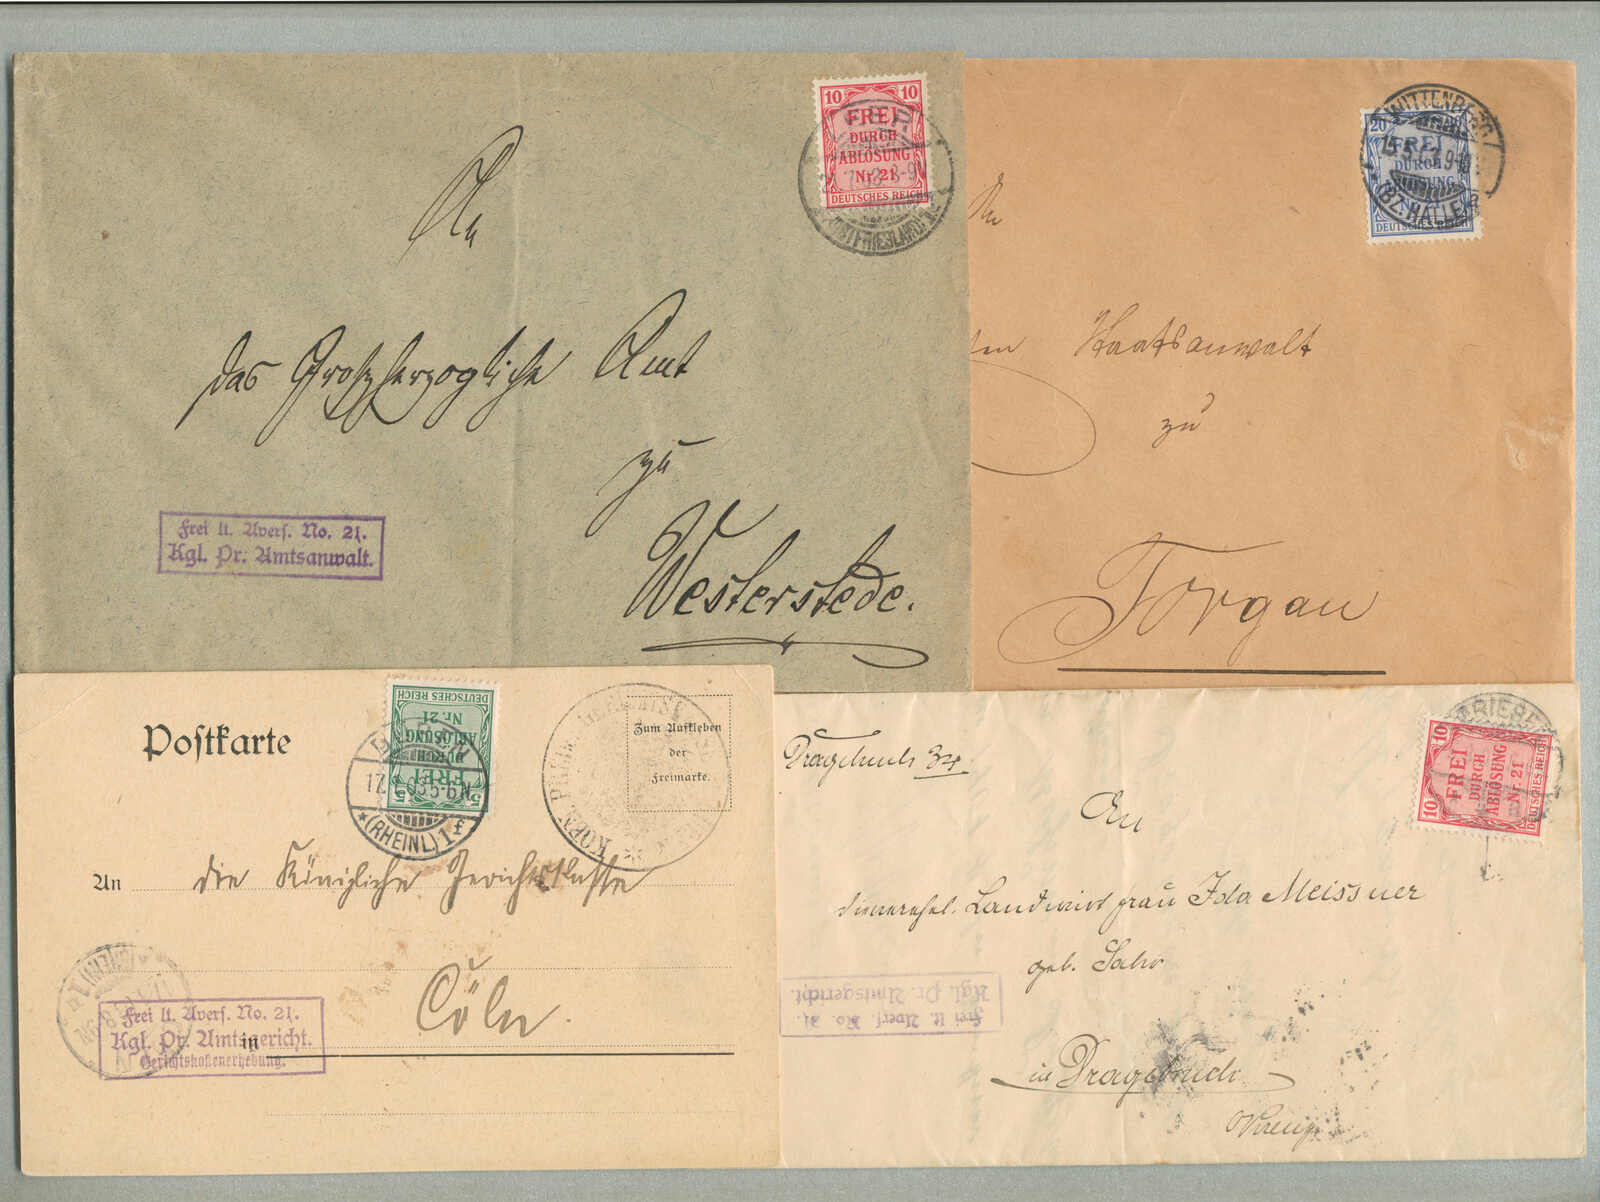 10 10
FREI
DURCH
ABLÖSUNG
Nr. 21
DEUTSCHES REICH
An
das Großherzogliche Amt
zu
Westerstede.
Frei lt. Avers. No. 21.
Kgl. Pr. Amtsanwalt.
WITTENBERG
(BZ. HALLE)
20
FREI
DURCH
DEUTSCHES REICH
An
Staatsanwalt
zu
Torgau
Postkarte
DEUTSCHES REICH
Nr. 21
ABLÖSUNG
DURCH
FREI
5
(RHEINL) 1 f
Zum Aufkleben
der
Freimarke.
An die Königliche Gerichtskasse
Cöln.
in
Frei lt. Avers. No. 21.
Kgl. Pr. Amtsgericht.
Gerichtskostenerhebung.
10 10
FREI
DURCH
ABLÖSUNG
Nr. 21
DEUTSCHES REICH
An
Frau Ida Meissner
geb.
in
Frei lt. Avers. No. 21.
Kgl. Pr. Amtsgericht.